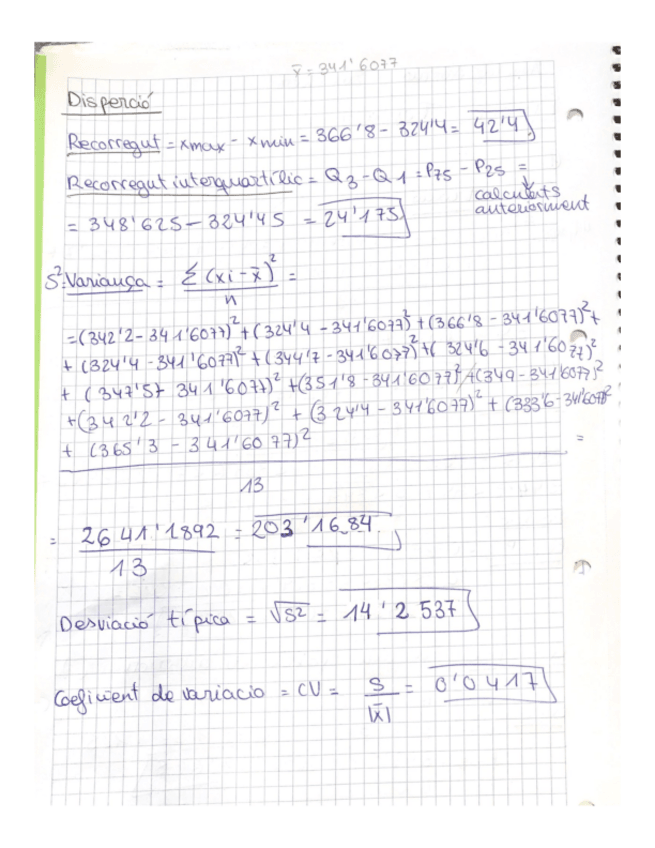 x̄ = 341'6077
Disperció
Recorregut = xmax - xmin = 366'8 - 324'4 = 42'4
Recorregut interquartílic = Q3 - Q1 = P75 - P25 =
calculats
anteriorment
= 348'625 - 324'45 = 24'175
S²: Variança = Σ (xi - x̄)² / n =
= (342'2 - 341'6077)² + (324'4 - 341'6077)² + (366'8 - 341'6077)² +
+ (324'4 - 341'6077)² + (344'7 - 341'6077)² + (324'6 - 341'6077)²
+ (347'5 + 341'6077)² + (351'8 - 341'6077)² + (349 - 341'6077)²
+ (342'2 - 341'6077)² + (324'4 - 341'6077)² + (333'6 - 341'6077)²
+ (365'3 - 341'6077)² =
13
= 2641'1892 / 13 = 203'1684
Desviació típica = √S² = 14'2537
Coeficient de variacio = CV = S / |x̄| = 0'0417